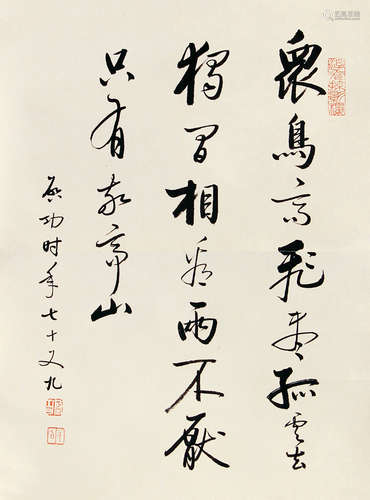 衆鳥高飛盡孤雲去
獨閒相看兩不厭
只有敬亭山
啟功时年七十又九